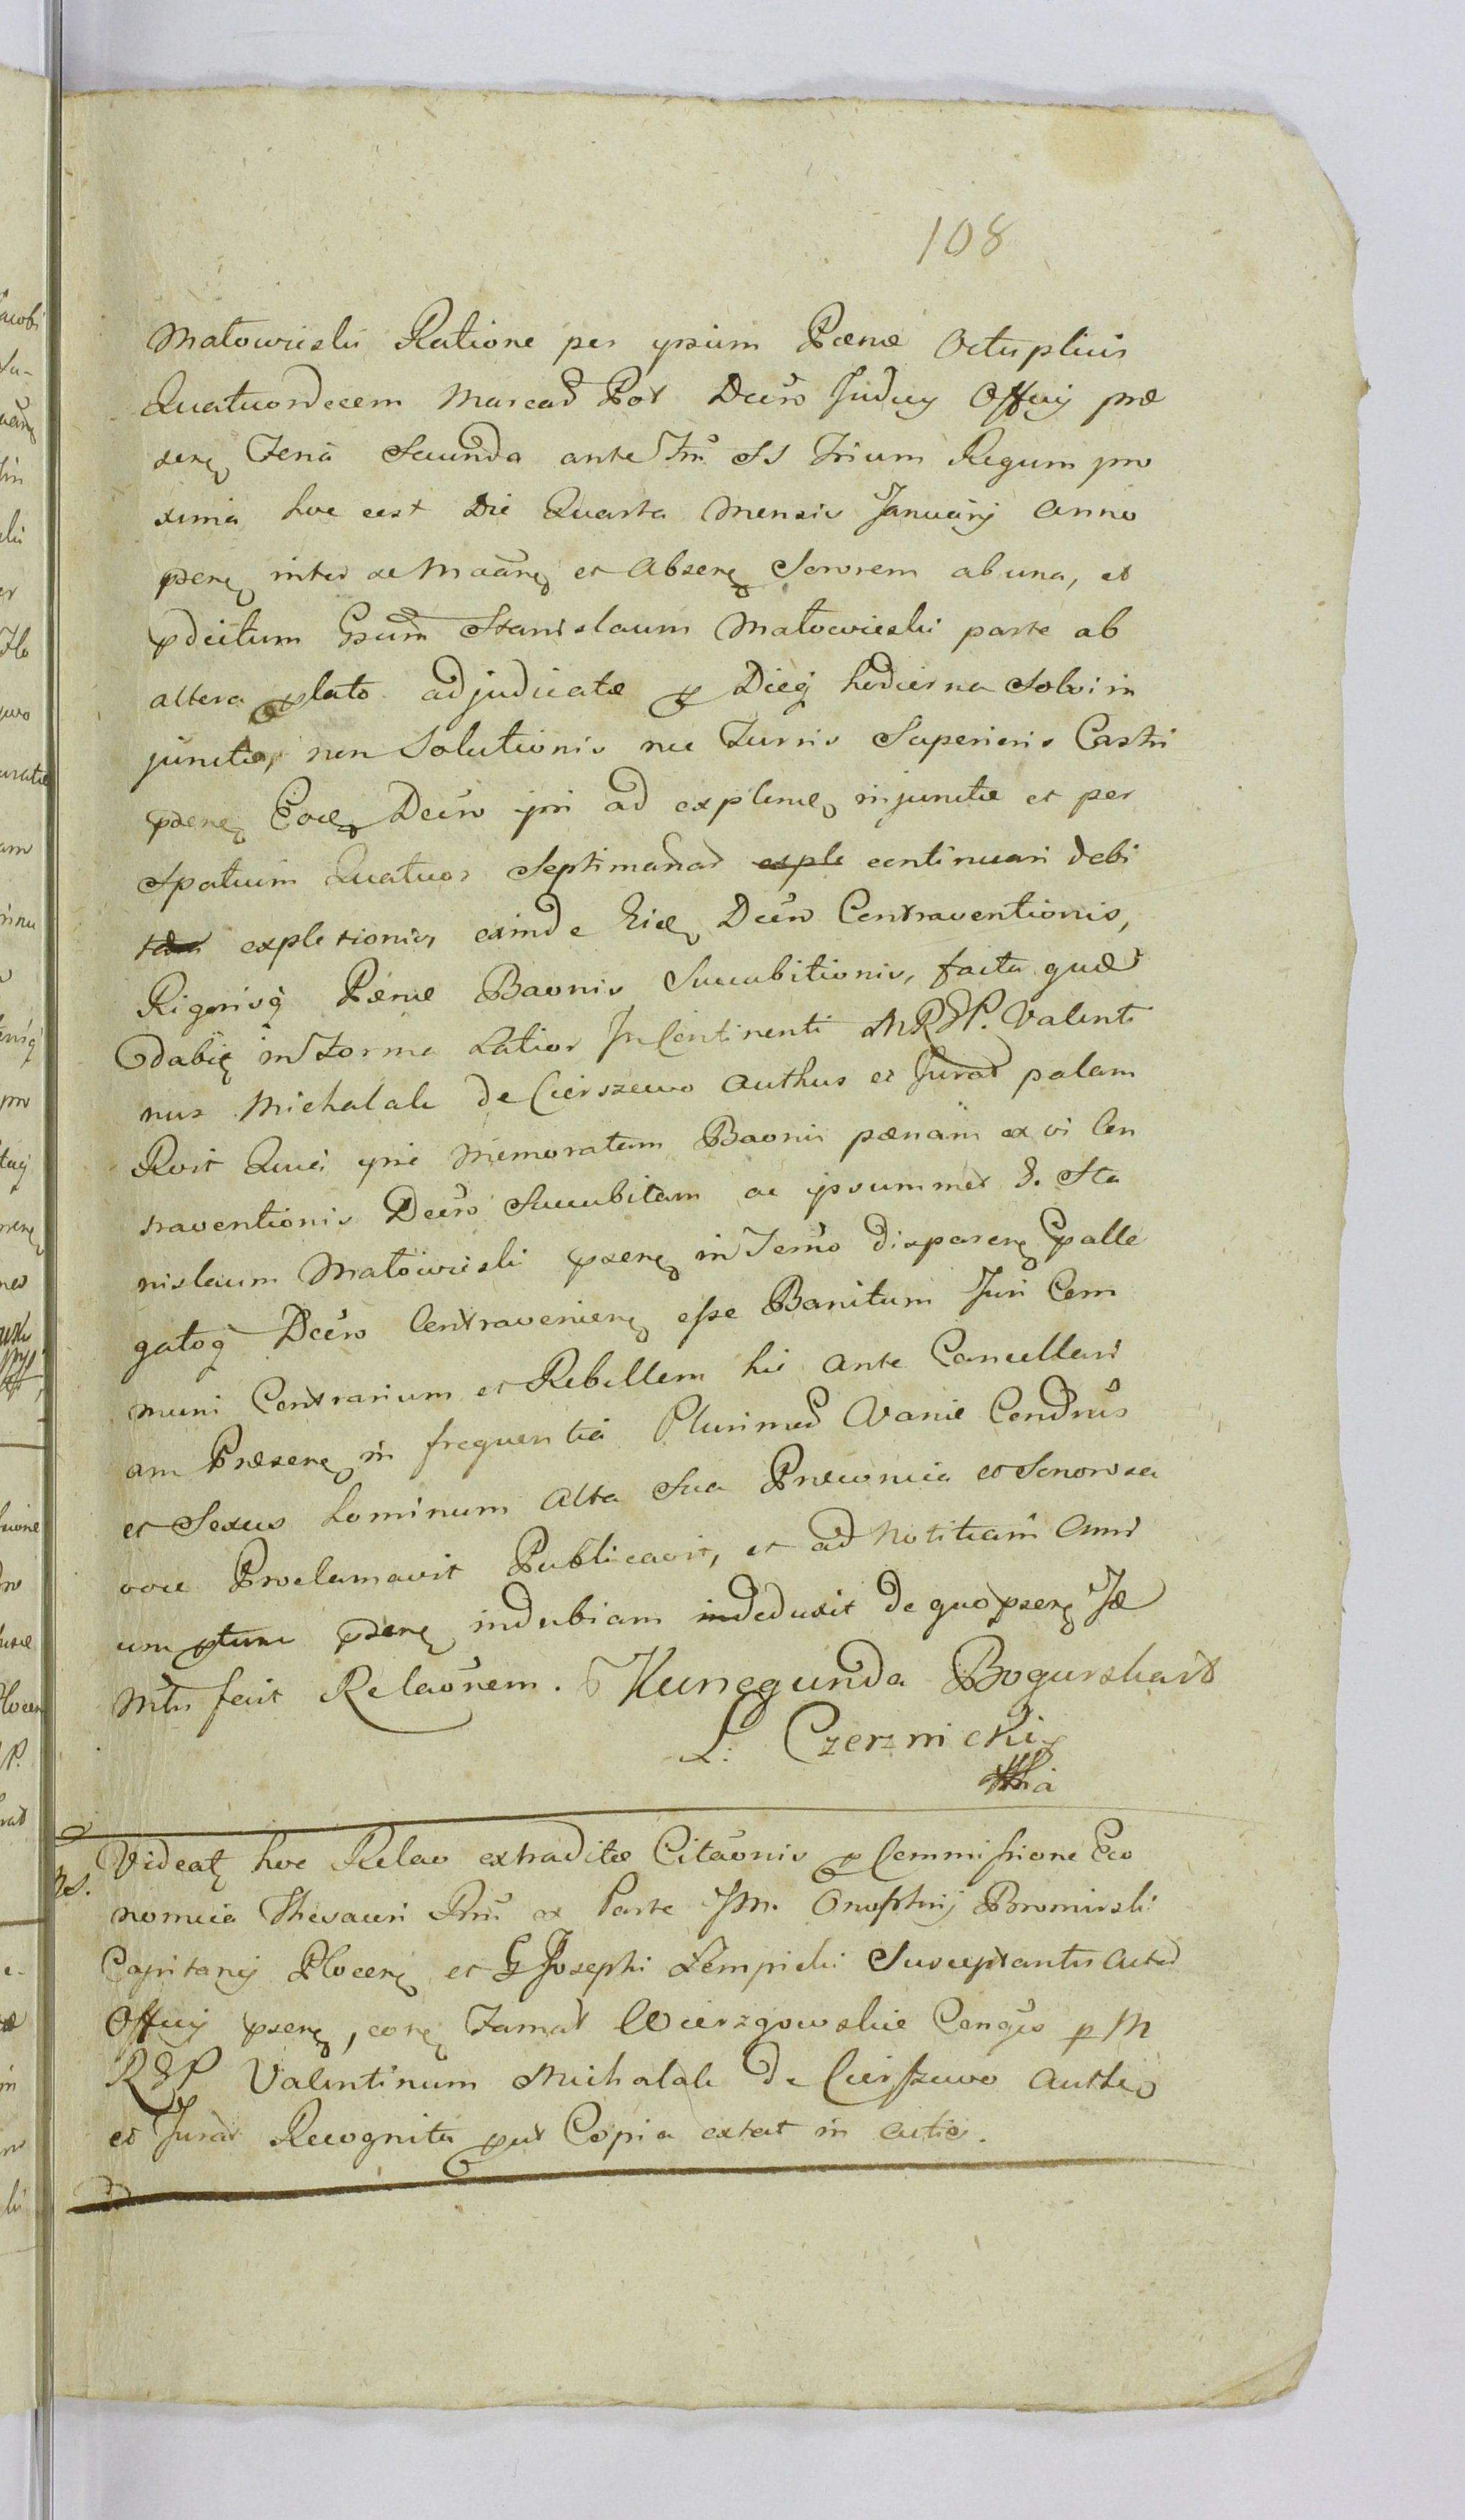 108
Małowieski Ratione per ipsum Pænæ Octuplius
Quatuordecem Marcar Pol Decro Judicy Officij præ
sen Feria Secunda ante Fm SS Trium Regum pro
xima hoc est Die Quarta Mensis Januarij Anno
psen inter se Maan et Absen Sororem ab una, et
pdictum Gsum Stanislaum Małowieski parte ab
altera plato adjudicatæ p Dieq hodierna Solvi in
junctæ, non Solutionis nec Turris Superioris Castri
psen Eod Decro ipi ad explen injunctæ et per
Spatium Quatuor Septimanar exple continuari debi
expletionis, exinde Eid Decro Contraventionis,
Rigorisq Pænæ Baonis Succubitionis, facta quæ
dabit in Forma Latior In Continenti MRDP. Valenti
nus Michalak de Cierszewo Authus et Jurat palam
Rvit Quia ipse Memoratam Baonis pænam ex vi Con
traventionis Decro Succubitam ac ipsummet G. Sta
nislaum Małowieski psen in Termo disparen Spalle
gatoq Decro Contravenien esse Banitum Juri Com
muni Contrarium et Rebellem hic ante Cancellari
am Præsen in frequentia Plurimar Variæ Condnis
et Sexus hominum Alta Sua Præconica et Sonorosa
voce Proclamavit Publicavit, et ad Notitiam Omni
um ptum psen indubiam indeduxit de quo psen Jæ
mtu fecit Relaonem. Kunegunda Bogurskart
L. Czerznicki
Videat hoc Relao extraditæ Citaonis p Commissione Eco
Ns.
nomica Thesauri Rni ex Parte Jm. Onufhrij Bromirski
Capitanij Plocen et G Josephi Lempicki Susceptantis Actor
Officij psen, con Famat Wierzgowskie Congs p M
RDP Valentinum Michalak de Cierszewo Auth
et Jurat Recognita put Copia extat in actis.